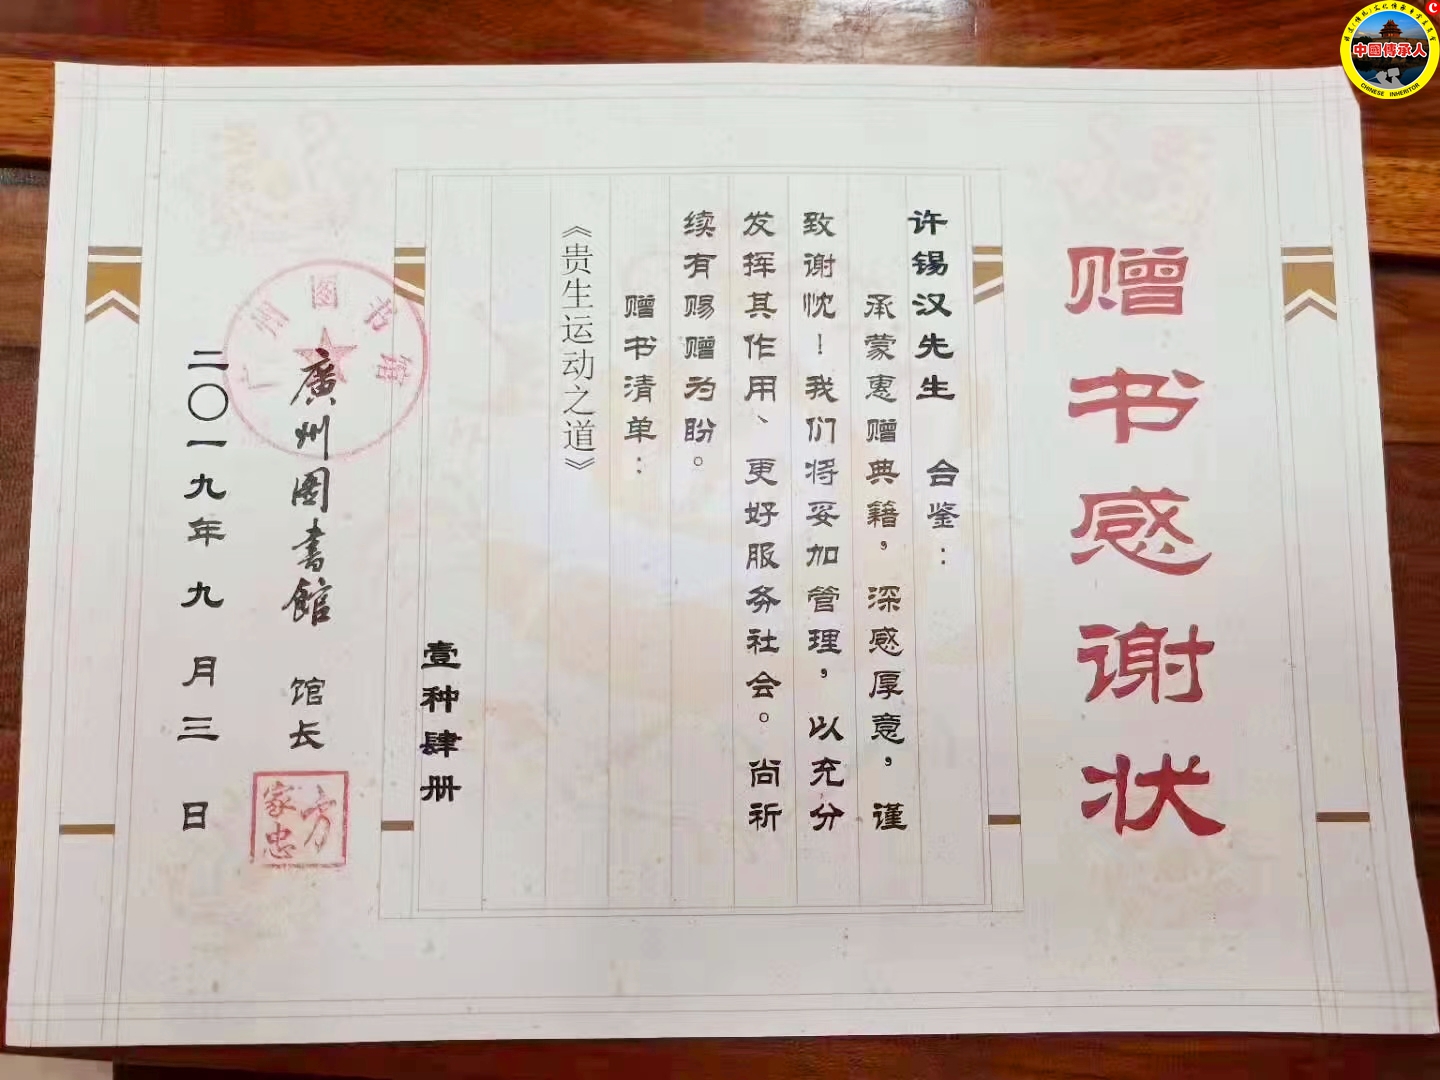 赠书感谢状
许锡汉先生 台鉴：
承蒙惠赠典籍，深感厚意，谨
致谢忱！我们将妥加管理，以充分
发挥其作用、更好服务社会。尚祈
续有赐赠为盼。
赠书清单：
《贵生运动之道》
壹种肆册
廣州圖書館 馆长
方家忠
广州图书馆
二〇一九年九月三日
中國傳承人
CHINESE INHERITOR
C